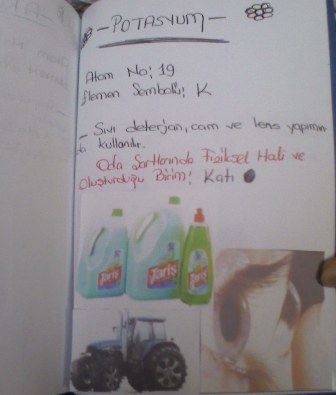 - POTASYUM -
Atom No: 19
Element Sembolü: K
- Sıvı deterjan, cam ve lens yapımın
da kullanılır.
Oda Şartlarında Fiziksel Hali ve
Oluşturduğu Birim: Katı
Tariş
Tariş